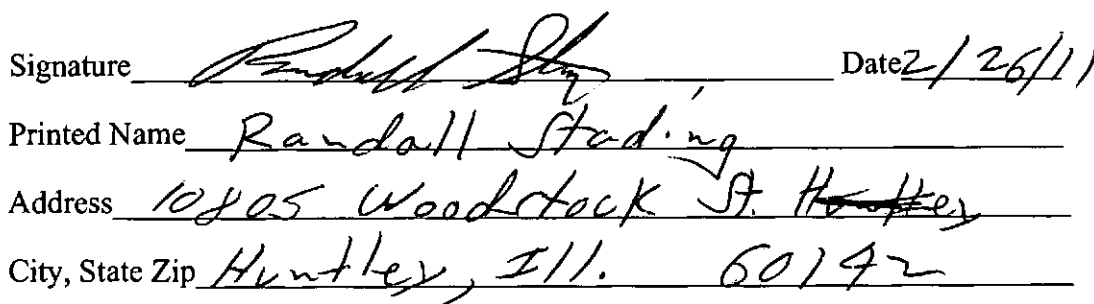 Signature Randall Stading Date 2/26/11
Printed Name Randall Stading
Address 10805 Woodstock St. Huntley
City, State Zip Huntley, Ill. 60142